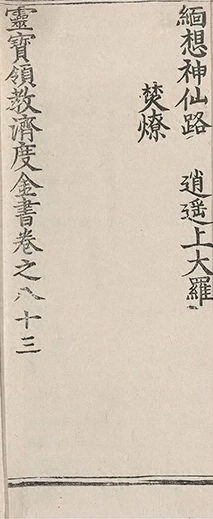 緬想神仙路　逍遥上大羅
焚燎
靈寳領教濟度金書卷之八十三